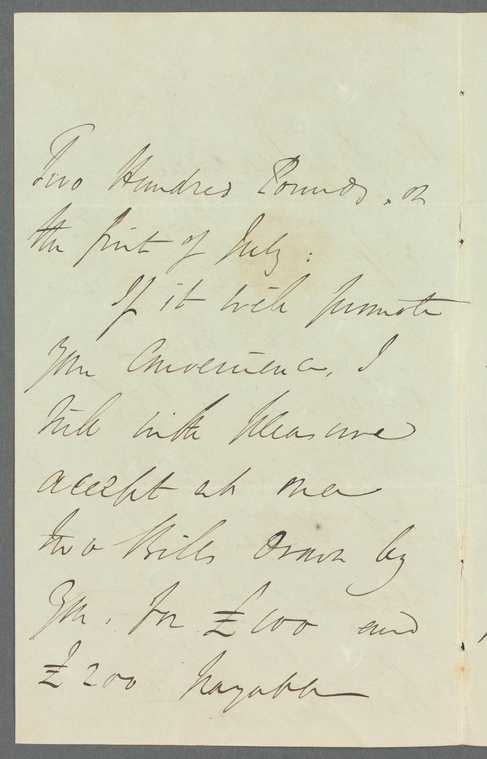 Two Hundred Pounds, on
the first of July:
If it will promote
your convenience, I
will with pleasure
accept at once
two Bills drawn by
you, for £100 and
£200 payable